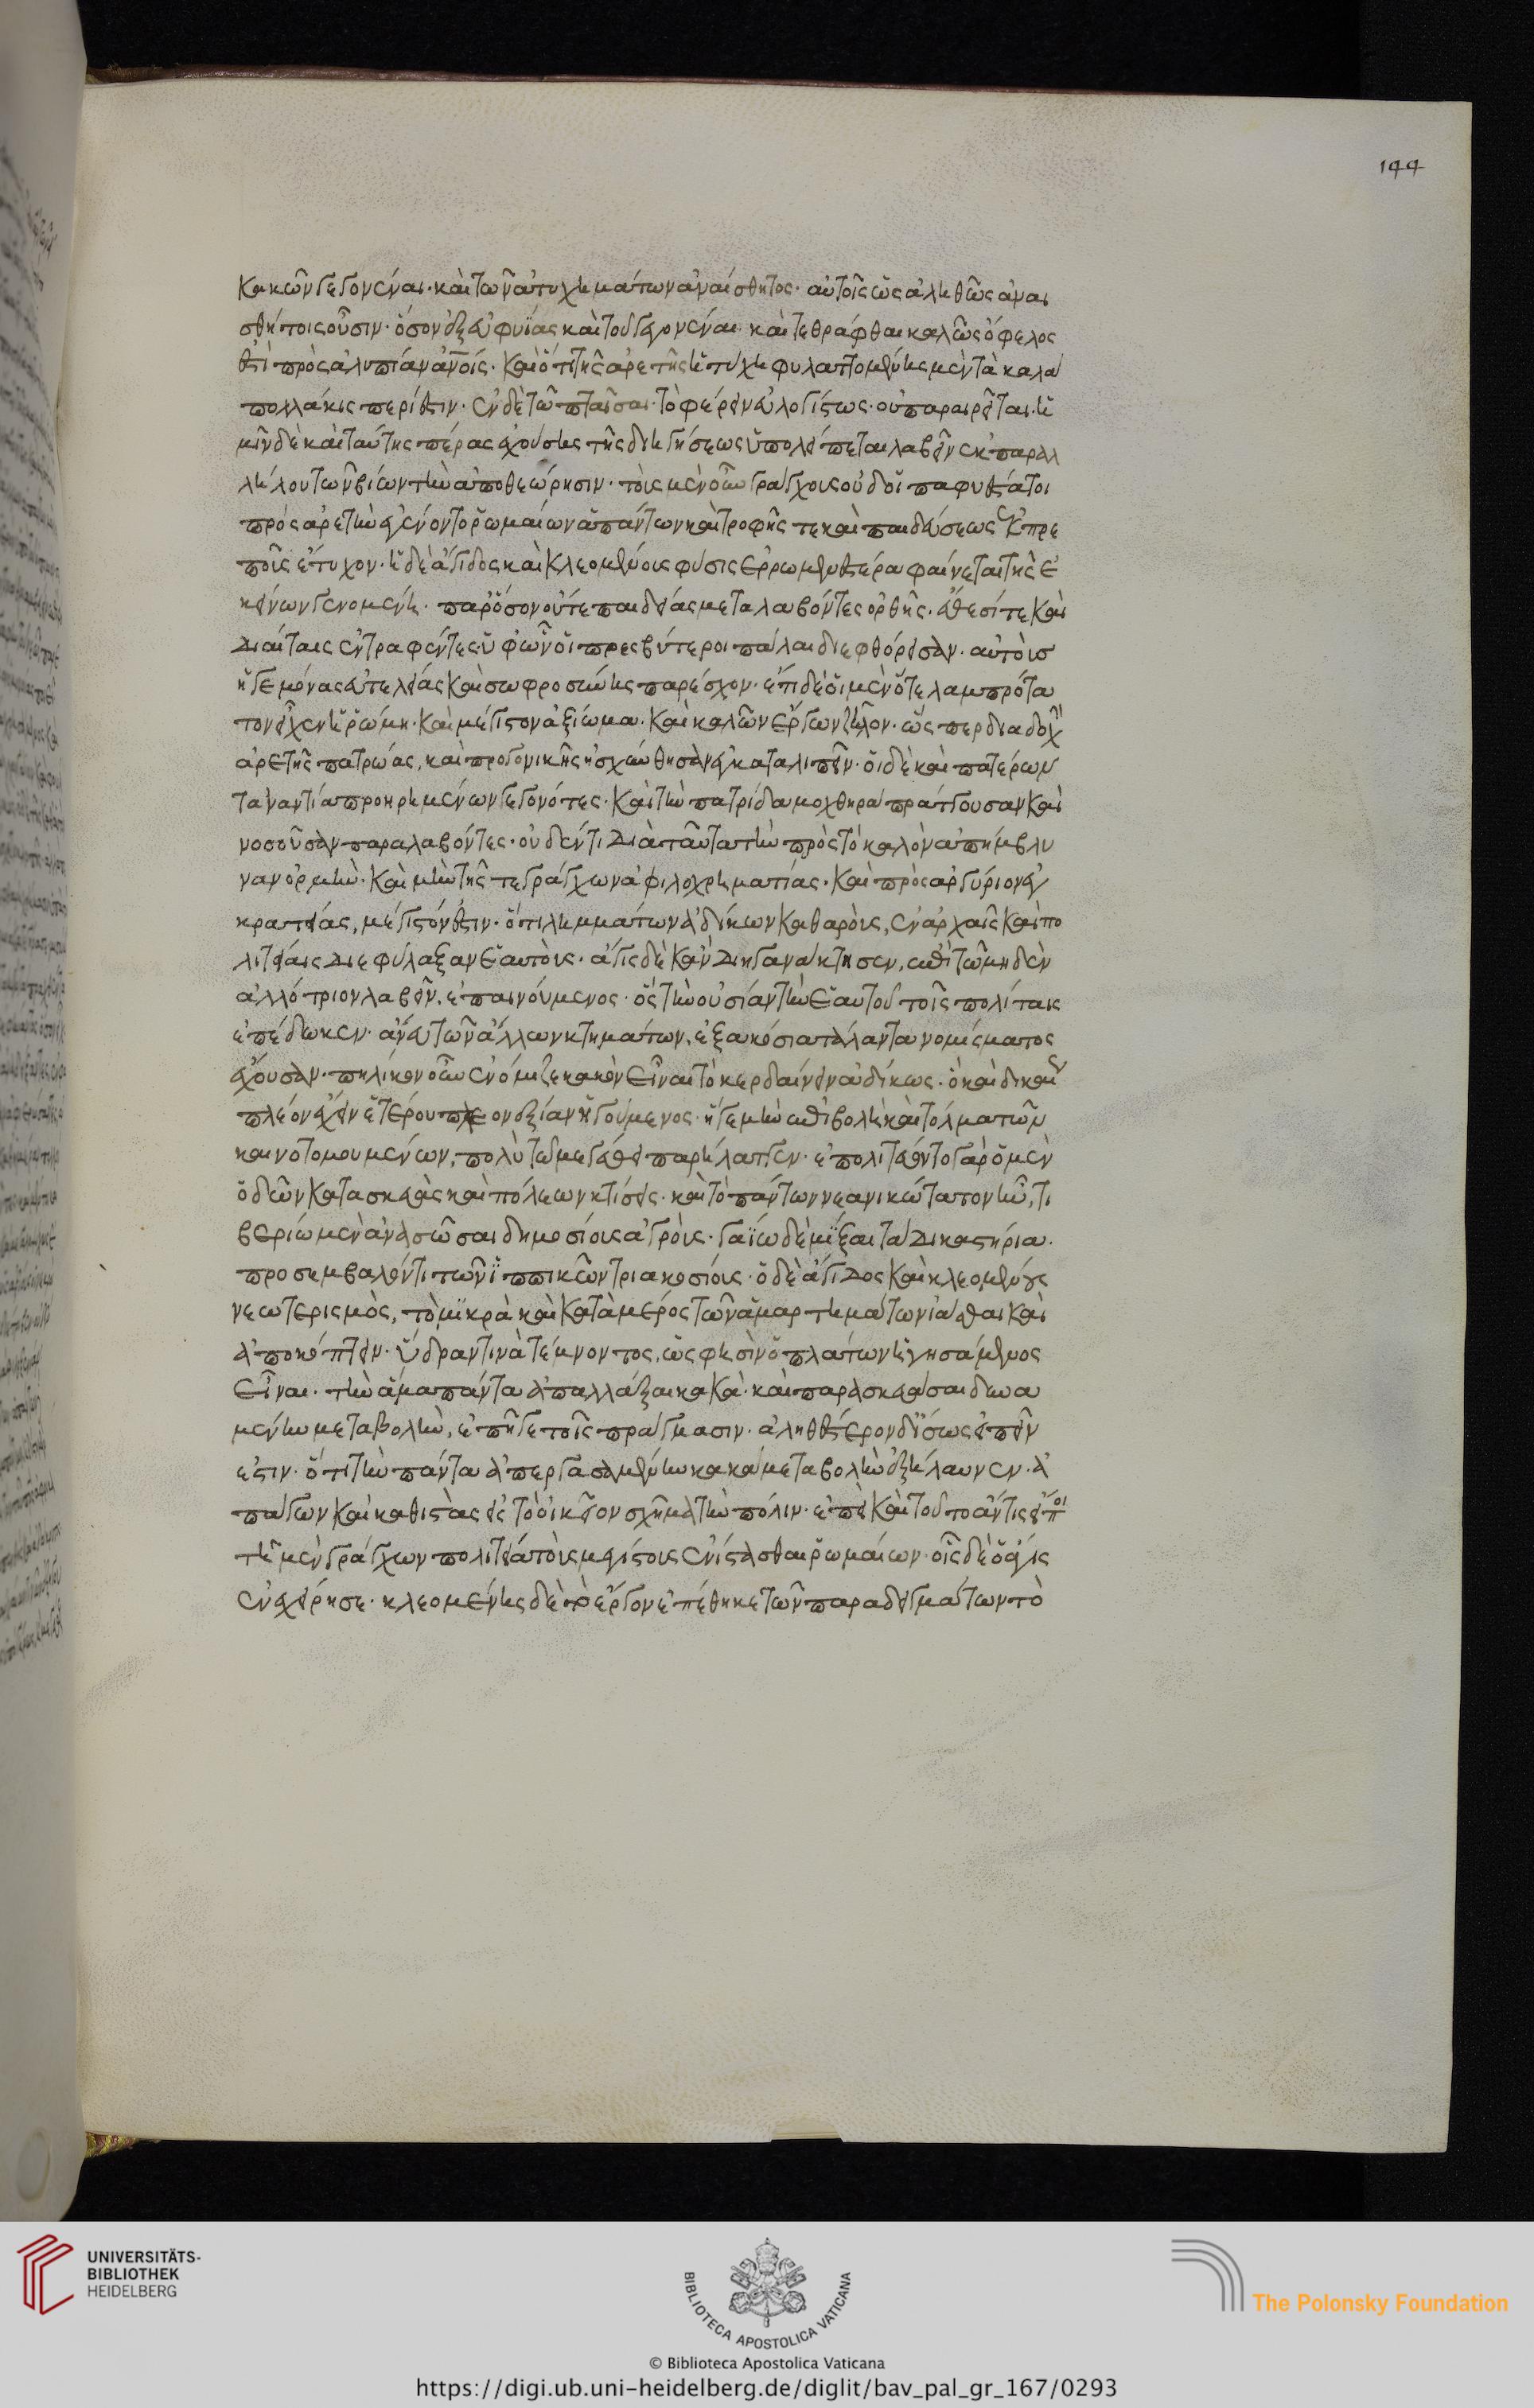 144
κακῶν γεγονέναι· καὶ τῶν ἀτυχημάτων ἀναίσθητος· αὐτοῖς ὡς ἀληθῶς ἀναι
σθήτοις οὖσιν· ὅσον ἐξ εὐφυΐας καὶ τοῦ γεγονέναι καὶ τεθράφθαι καλῶς ὄφελος
ἐστὶ πρὸς ἀλυπίαν ἀν̅οις· καὶ ὅτι τῆς ἀρετῆς ἡ τύχη φυλαττομένης μὲν τὰ καλὰ
πολλάκις περίεστιν· ἐν δὲ τῶ πταῖσαι· τὸ φέρειν εὐλογίστως· οὐ παραιρεῖται· ἡ
μῖν δὲ καὶ ταύτης πέρας ἐχούσης τῆς διηγήσεως ὑπολείπεται λαβεῖν ἐκ παραλ
λήλου τῶν βίων τὴν ἀποθεώρησιν· τοὺς μὲν οὖν γράγχοις οὐδ' οἵ
πρὸς ἀρετὴν ἐγένοντο ῥωμαίων ἁπάντων καὶ τροφῆς τε καὶ παιδεύσεως ἐκπρε
ποῦς ἔτυχον· ἡ δὲ ἄγιδος καὶ κλεομένους φύσις ἐρρωμενεστέρα φαίνεται τῆς ἐ
κείνων γενομένη· παρ' ὅσον οὔτε παιδείας μεταλαβόντες ὀρθῆς· ἔθεσί τε καὶ
διαίταις ἐντραφέντες· ὑφ' ὧν οἱ πρεσβύτεροι πάλαι διεφθόρεισαν· αὐτοὺς
ἡγεμόνας εὐτελείας καὶ σωφροσύνης παρέσχον· ἐπὶ δὲ οἱ μὲν ὅτε λαμπρότα
τον εἶχεν ἡ ῥώμη· καὶ μέγιστον ἀξίωμα· καὶ καλῶν ἔργων ζῆλον· ὥσπερ διαδοχὴν
ἀρετῆς πατρώας, καὶ προγονικῆς ἠσχύνθησαν ἐγκαταλιπεῖν· οἱ δὲ καὶ πατέρων
τἀναντία προηρημένων γεγονότες· καὶ τὴν πατρίδα μοχθηρὰ πράττουσαν καὶ
νοσοῦσαν παραλαβόντες· οὐδέν τι διὰ ταῦτα τὴν πρὸς τὸ καλὸν ἀπήμβλυ
ναν ὁρμήν· καὶ μὴν τῆς τε γράγχων ἀφιλοχρηματίας· καὶ πρὸς ἀργύριον ἐγ
κρατείας, μέγιστόν ἐστιν· ὅτι λημμάτων ἀδίκων καθαροὺς, ἐν ἀρχαῖς καὶ πο
λιτείαις διεφύλαξαν ἑαυτούς· ἄγις δὲ κἂν διηγανάκτησεν, ἐπὶ τῶ μηδὲν
ἀλλότριον λαβεῖν, ἐπαινούμενος· ὃς τὴν οὐσίαν τὴν ἑαυτοῦ τοῖς πολίταις
ἐπέδωκεν· ἄνευ τῶν ἄλλων κτημάτων, ἑξακόσια τάλαντα νομίσματος
ἔχουσαν· πηλίκον οὖν ἐνόμιζε κακὸν εἶναι τὸ κερδαίνειν ἀδίκως· ὁ καὶ δικαίως
πλέον ἔχειν ἑτέρου πλεονεξίαν ἡγούμενος· ἥ γε μὴν ἐπιβολὴ καὶ τόλμα τῶν
καινοτομουμένων, πολὺ τῶ μεγέθει παρήλαττεν· ἐπολιτεύοντο γὰρ ὁ μὲν
ὁδῶν κατασκευὰς καὶ πόλεων κτίσεις· καὶ τὸ πάντων νεανικώτατον ἦν, τι
βερίω μὲν ἀνασῶσαι δημοσίους ἀγρούς· γαΐω δὲ μῖξαι τὰ δικαστήρια·
προσεμβαλόντι τῶν ἱππικῶν τριακοσίους· ὁ δὲ ἄγιδος καὶ κλεομένους
νεωτερισμὸς, τὸ μικρὰ καὶ κατὰ μέρος τῶν ἁμαρτημάτων ἰᾶσθαι καὶ
ἀποκόπτειν· ὕδραν τινὰ τέμνοντος, ὥς φησιν ὁ πλάτων ἡγησάμενος
εἶναι· τὴν ἅμα πάντα ἀπαλλάξαι κακὰ· καὶ παρασκευάσαι δυνα
μένην μεταβολὴν, ἐπῆγε τοῖς πράγμασιν· ἀληθέστερον δ' ἴσως εἰπεῖν
ἐστιν· ὅτι τὴν πάντα ἀπεργασαμένην κακὰ μεταβολὴν ἐξήλαυνεν· ἀ
πάγων καὶ καθιστὰς εἰς τὸ οἰκεῖον σχῆμα τὴν πόλιν· ἐπεὶ καὶ τοῦτο ἄν τις εἴποι
τῇ μὲν γράγχων πολιτείᾳ τοὺς μεγίστους ἐνίστασθαι ῥωμαίων· οἷς δὲ ὁ ἄγις
ἐνεχείρησε· κλεομένης δὲ τὸ ἔργον ἐπέθηκε τῶν παραδειγμάτων τὸ
UNIVERSITÄTS-
BIBLIOTHEK
HEIDELBERG
BIBLIOTECA APOSTOLICA VATICANA
The Polonsky Foundation
© Biblioteca Apostolica Vaticana
https://digi.ub.uni-heidelberg.de/diglit/bav_pal_gr_167/0293